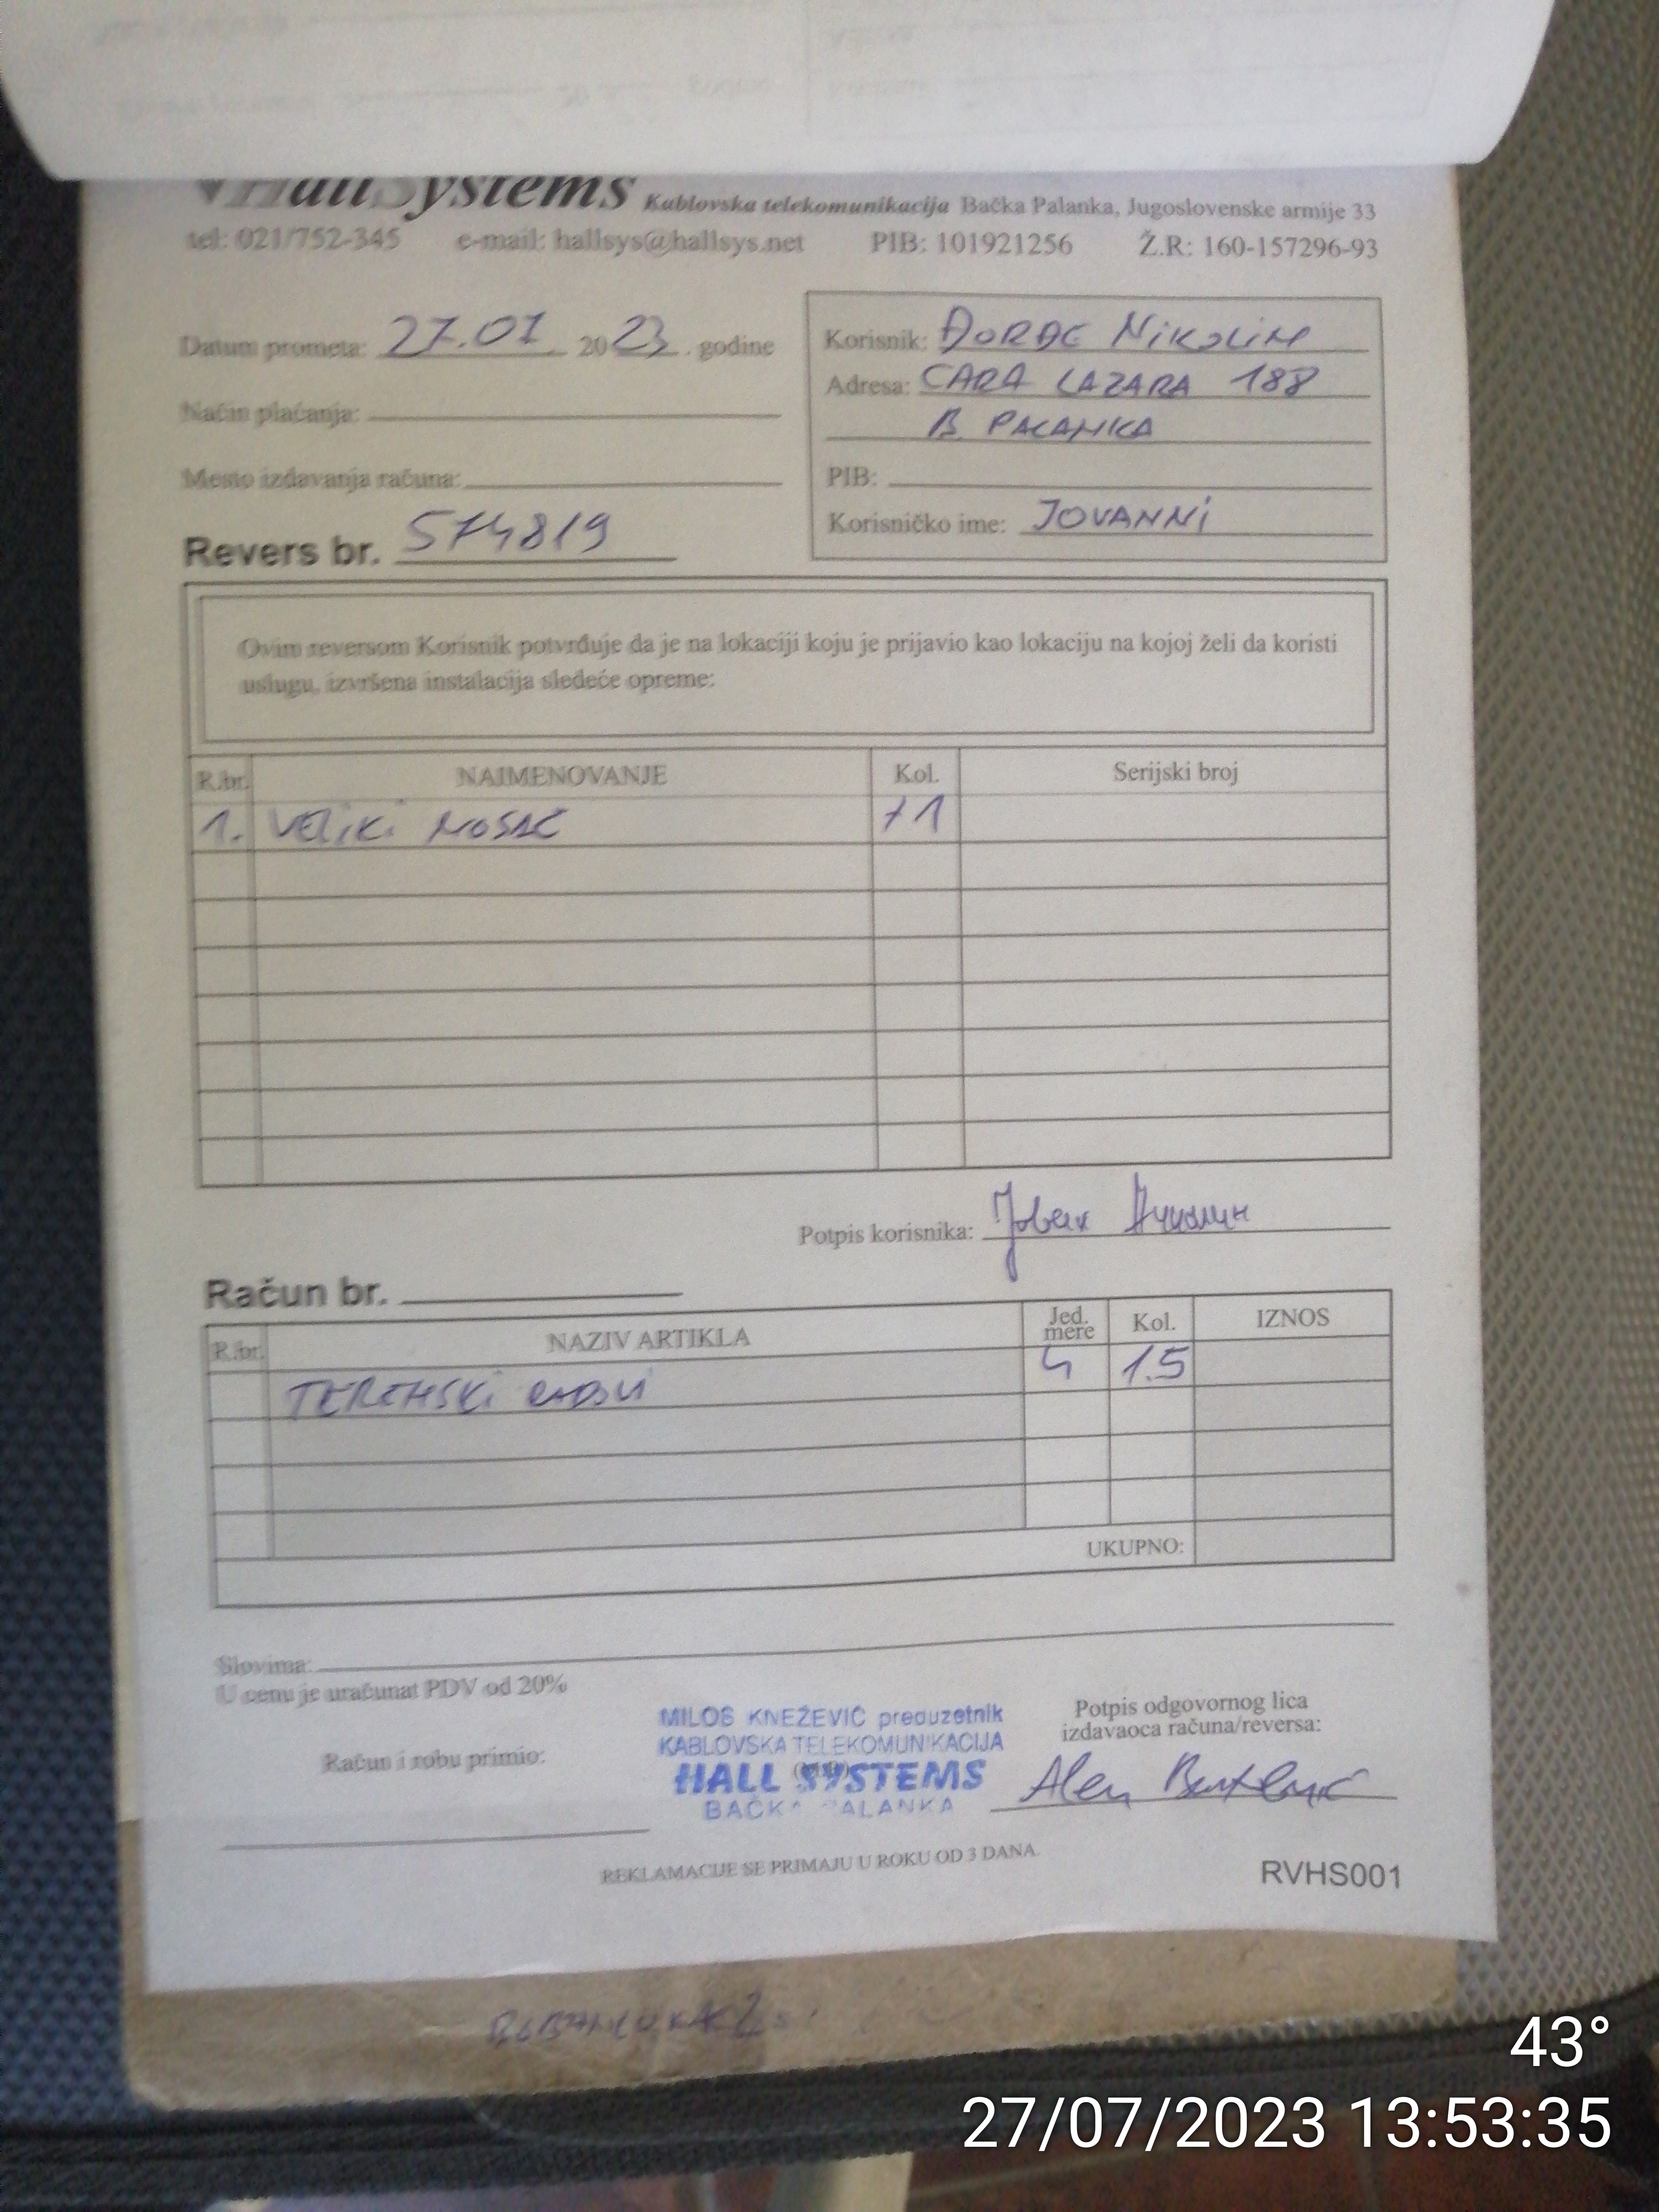 HallSystems Kablovska telekomunikacija Bačka Palanka, Jugoslovenske armije 33
tel: 021/752-345 e-mail: hallsys@hallsys.net PIB: 101921256 Ž.R: 160-157296-93
Datum prometa: 27.07 2023. godine
Način plaćanja:
Mesto izdavanja računa:
Revers br. 574819
Korisnik: ĐORĐE NIKOLIN
Adresa: CARA LAZARA 188
B. PALANKA
PIB:
Korisničko ime: JOVANNI
Ovim reversom Korisnik potvrđuje da je na lokaciji koju je prijavio kao lokaciju na kojoj želi da koristi
uslugu, izvršena instalacija sledeće opreme:
R.br. NAIMENOVANJE Kol. Serijski broj
1. VELIKI NOSAČ +1
Potpis korisnika: Јован Николин
Račun br.
R.br. NAZIV ARTIKLA Jed. mere Kol. IZNOS
TERENSKI RADOVI 1.5
UKUPNO:
Slovima:
U cenu je uračunat PDV od 20%
Račun i robu primio:
MILOŠ KNEŽEVIĆ preduzetnik
KABLOVSKA TELEKOMUNIKACIJA
HALL SYSTEMS
BAČKA PALANKA
(M.P.)
Potpis odgovornog lica
izdavaoca računa/reversa:
Alen
REKLAMACIJE SE PRIMAJU U ROKU OD 3 DANA.
RVHS001
43°
27/07/2023 13:53:35